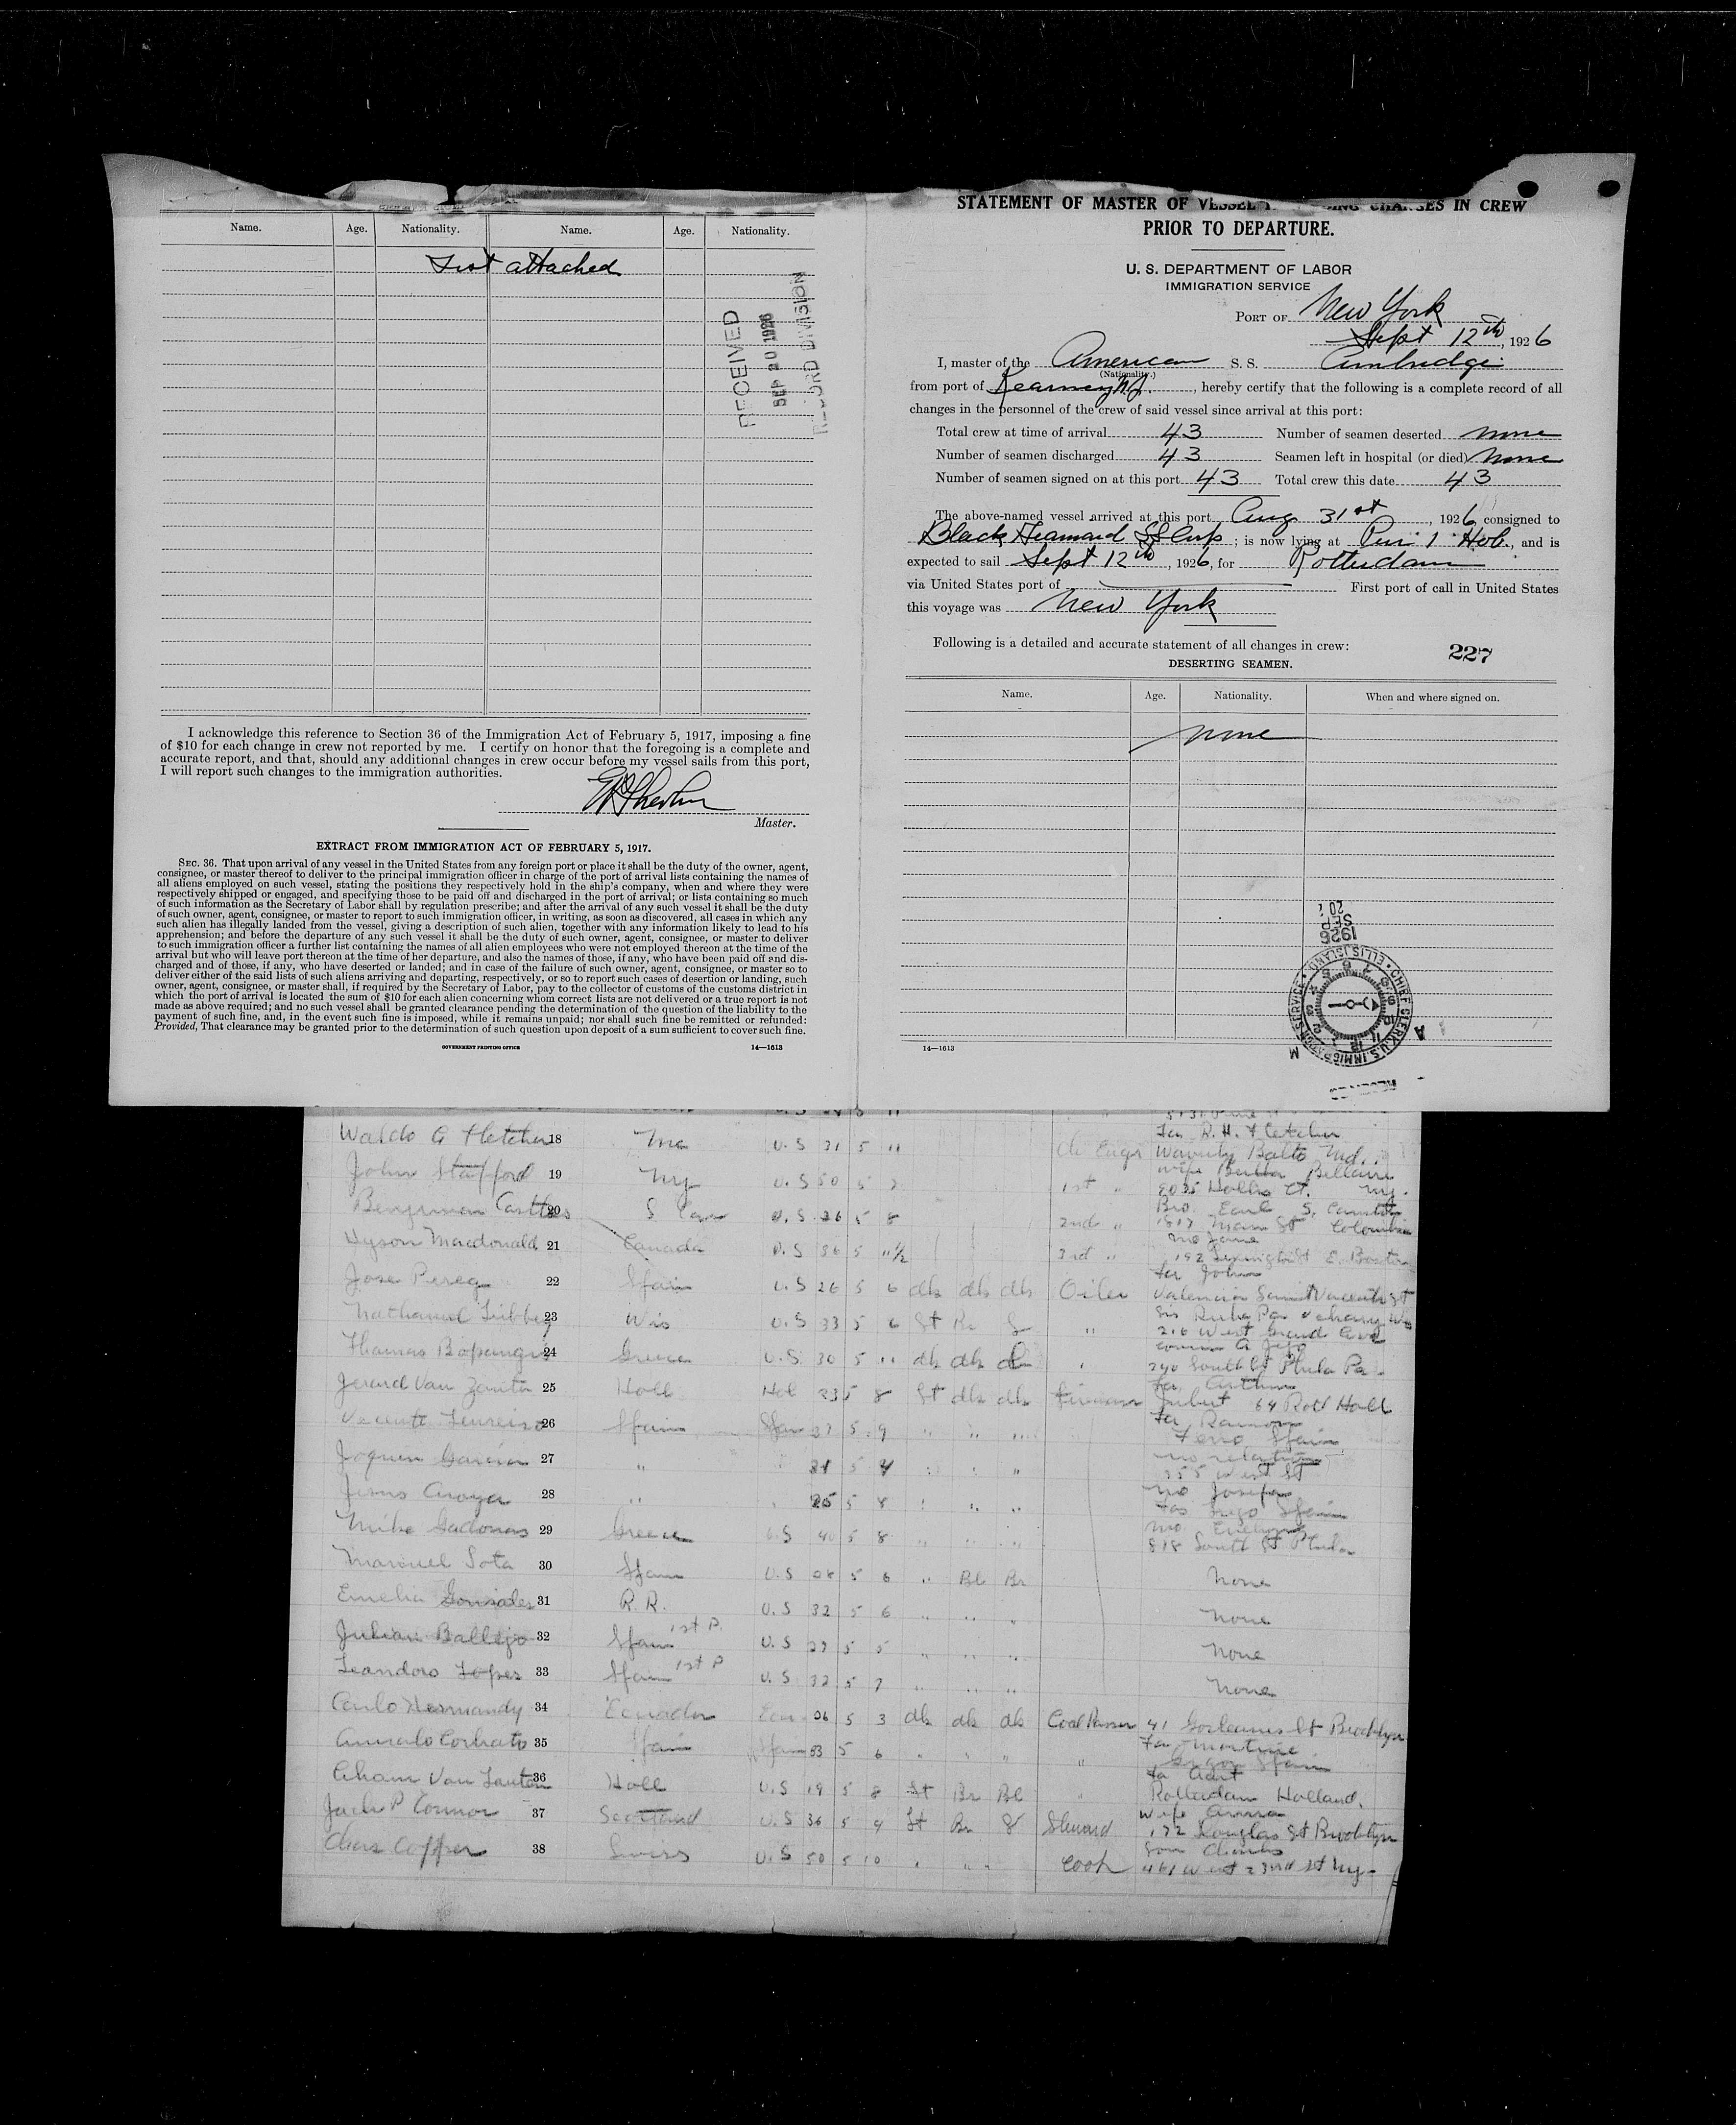 Name. Age. Nationality. Name. Age. Nationality.
List attached
RECEIVED
SEP 20 1926
RECORD DIVISION
I acknowledge this reference to Section 36 of the Immigration Act of February 5, 1917, imposing a fine
of $10 for each change in crew not reported by me. I certify on honor that the foregoing is a complete and
accurate report, and that, should any additional changes in crew occur before my vessel sails from this port,
I will report such changes to the immigration authorities.
Master.
EXTRACT FROM IMMIGRATION ACT OF FEBRUARY 5, 1917.
SEC. 36. That upon arrival of any vessel in the United States from any foreign port or place it shall be the duty of the owner, agent,
consignee, or master thereof to deliver to the principal immigration officer in charge of the port of arrival lists containing the names of
all aliens employed on such vessel, stating the positions they respectively hold in the ship's company, when and where they were
respectively shipped or engaged, and specifying those to be paid off and discharged in the port of arrival; or lists containing so much
of such information as the Secretary of Labor shall by regulation prescribe; and after the arrival of any such vessel it shall be the duty
of such owner, agent, consignee, or master to report to such immigration officer, in writing, as soon as discovered, all cases in which any
such alien has illegally landed from the vessel, giving a description of such alien, together with any information likely to lead to his
apprehension; and before the departure of any such vessel it shall be the duty of such owner, agent, consignee, or master to deliver
to such immigration officer a further list containing the names of all alien employees who were not employed thereon at the time of the
arrival but who will leave port thereon at the time of her departure, and also the names of those, if any, who have been paid off and dis-
charged and of those, if any, who have deserted or landed; and in case of the failure of such owner, agent, consignee, or master so to
deliver either of the said lists of such aliens arriving and departing, respectively, or so to report such cases of desertion or landing, such
owner, agent, consignee, or master shall, if required by the Secretary of Labor, pay to the collector of customs of the customs district in
which the port of arrival is located the sum of $10 for each alien concerning whom correct lists are not delivered or a true report is not
made as above required; and no such vessel shall be granted clearance pending the determination of the question of the liability to the
payment of such fine, and, in the event such fine is imposed, while it remains unpaid; nor shall such fine be remitted or refunded:
Provided, That clearance may be granted prior to the determination of such question upon deposit of a sum sufficient to cover such fine.
GOVERNMENT PRINTING OFFICE 14—1613
STATEMENT OF MASTER OF VESSEL CHANGES IN CREW
PRIOR TO DEPARTURE.
U. S. DEPARTMENT OF LABOR
IMMIGRATION SERVICE
PORT OF New York
Sept 12th, 1926
I, master of the American S. S. Ambridge
(Nationality.)
from port of Kearney N.J., hereby certify that the following is a complete record of all
changes in the personnel of the crew of said vessel since arrival at this port:
Total crew at time of arrival 43 Number of seamen deserted none
Number of seamen discharged 43 Seamen left in hospital (or died) None
Number of seamen signed on at this port 43 Total crew this date 43
The above-named vessel arrived at this port Aug 31st, 1926, consigned to
Black Diamond SS Corp; is now lying at Pier 1 Hob., and is
expected to sail Sept 12th, 1926, for Rotterdam
via United States port of First port of call in United States
this voyage was New York
Following is a detailed and accurate statement of all changes in crew:
227
DESERTING SEAMEN.
Name. Age. Nationality. When and where signed on.
none
1926
SEP
20
CHIEF CLERK, U.S. IMMIGRATION SERVICE • ELLIS ISLAND •
A M
14—1613
Waldo G Fletcher 18 Me U.S 31 5 11 Waverly Balto Md.
John Stafford 19 NY U.S 50 5 7 1st " 8035 Hollis Ct. NY.
Castles 20 S Car U.S. 26 5 8 2nd " 1817 Main St Columbia
Hyson Macdonald 21 Canada U.S 36 5 11½ 3rd " E. Boston
Jose Perez 22 Spain U.S 26 5 6 dk dk dk Oiler
Nathaniel 23 Wis U.S 33 5 6 " 216 West Grand Ave
Thomas 24 Greece U.S. 30 5 11 dk dk " 240 South St Phila Pa.
Jerard Van 25 Holl Hol 23 5 8 dk dk Fireman Holl
Vecente 26 Spain Span 5 9 Spain
Joquin Garcia 27 " 5 4 355 West St
Jesus 28 " 25 5 8 Spain
Mike 29 Greece U.S 40 5 8 818 South St Phila
Manuel Sota 30 Spain U.S 5 6 " Bl Br None
Gonzales 31 U.S 32 5 6 None
Julian Ballejo 32 Spain 1st P. U.S 5 5 None
Leandoro Lopes 33 Spain 1st P U.S 32 5 7 None
Carlo 34 Ecuador 26 5 3 dk dk dk Coal Passer 41 St Brooklyn
35 Spain Span 33 5 6 " Spain
Van 36 Holl U.S 19 5 8 Br Bl " Rotterdam Holland.
Jack P Connor 37 Scotland U.S 36 5 Steward 172 Douglas St Brooklyn
Chas 38 Swiss U.S 50 5 10 Cook 461 West 23rd St NY